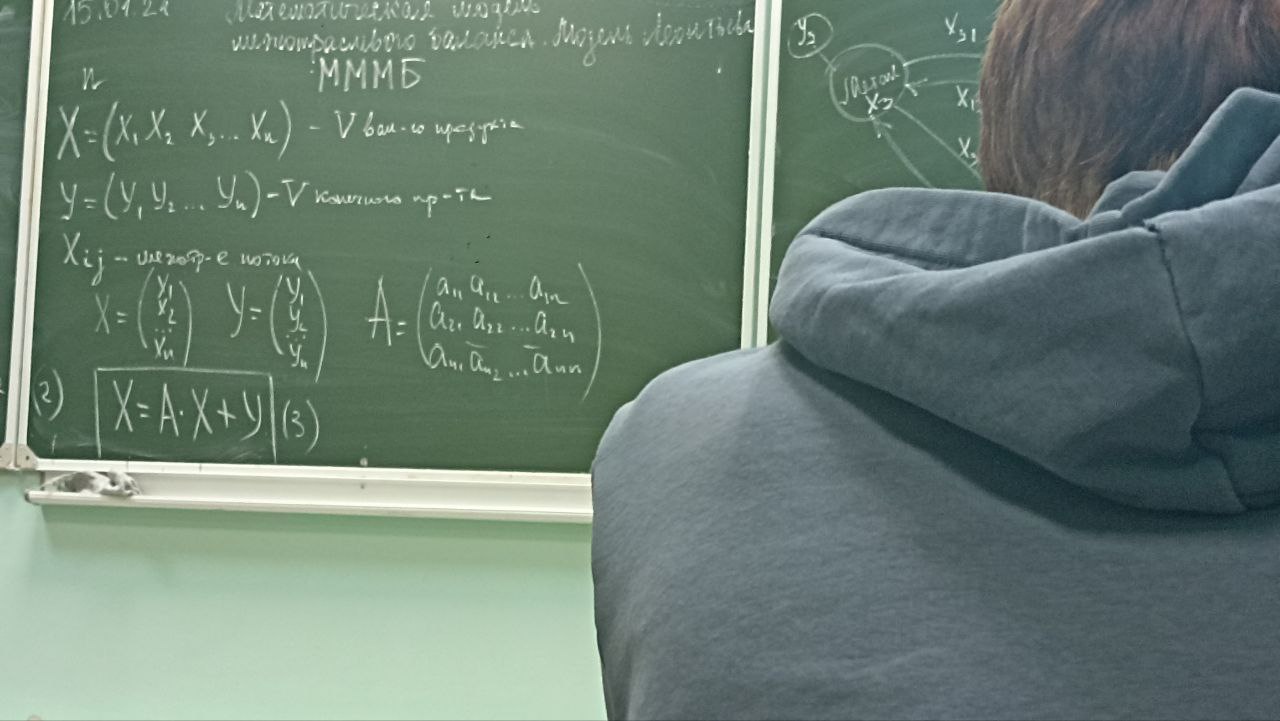 15.01.2
Математическая модель
межотраслевого баланса. Модель Леонтьева
МММБ
n
X=(X₁ X₂ X₃... Xₙ) - V вал-го продукта
У=(У₁ У₂... Уₙ) - V конечного пр-та
Xij - межотр-е потоки
X=(X₁ X₂ ... Xₙ) У=(У₁ У₂ ... Уₙ) A=(a₁₁ a₁₂ ... a₁ₙ
a₂₁ a₂₂ ... a₂ₙ
aₙ₁ aₙ₂ ... aₙₙ)
(2) X=A·X+У (3)
У₃
Металл
X₃
X₃₁